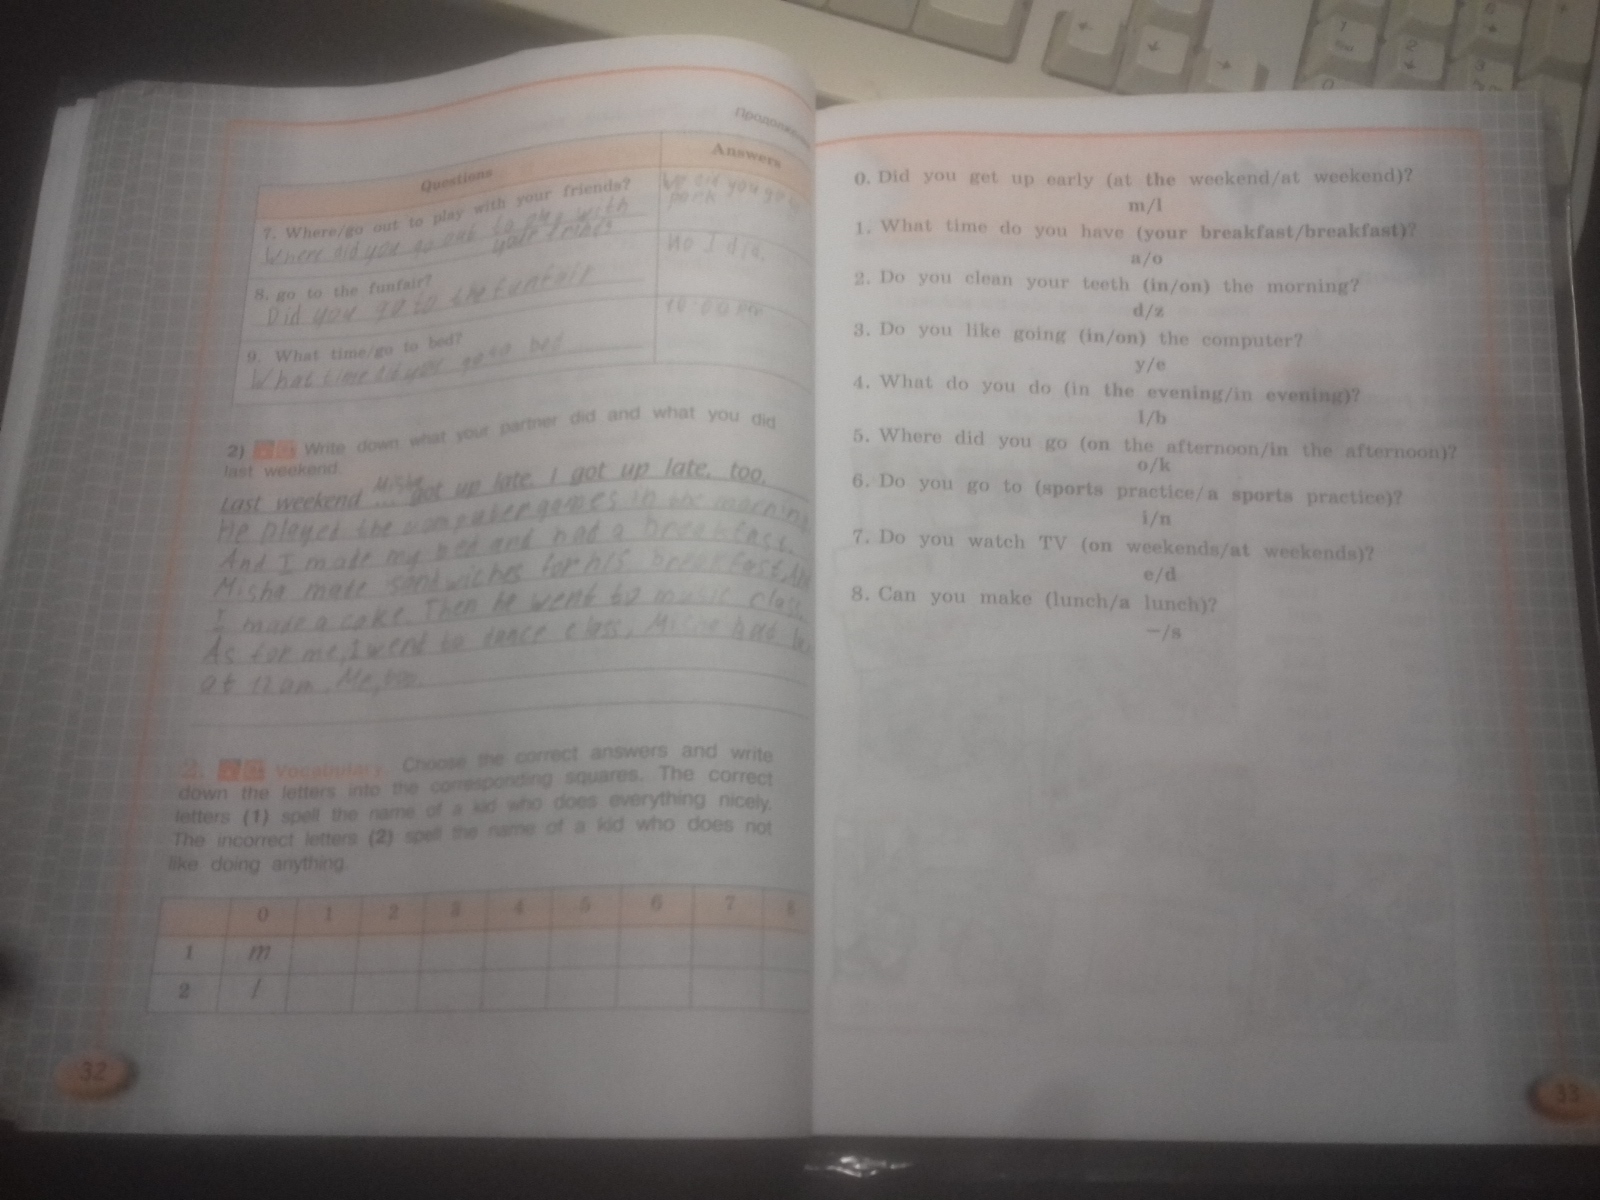 Questions
Answers
7. Where/go out to play with your friends?
Where did you go out to play with
your frinds
8. go to the funfair?
Did you go to the funfair
No I did.
9. What time/go to bed?
What time did you go to bed
10:00 pm
2) Write down what your partner did and what you did
last weekend.
Last weekend ... Misha got up late. I got up late, too.
He played the computer games in the morning
And I made my bed and had a breakfast.
Misha made sandwiches for his breakfast,
I made a cake. Then he went to music class.
As for me, I went to dance class, Misha had
at 12 am. Me, too.
2. Vocabulary. Choose the correct answers and write
down the letters into the corresponding squares. The correct
letters (1) spell the name of a kid who does everything nicely.
The incorrect letters (2) spell the name of a kid who does not
like doing anything.
0 1 2 3 4 5 6 7 8
1 m
2 l
32
0. Did you get up early (at the weekend/at weekend)?
m/l
1. What time do you have (your breakfast/breakfast)?
a/o
2. Do you clean your teeth (in/on) the morning?
d/z
3. Do you like going (in/on) the computer?
y/e
4. What do you do (in the evening/in evening)?
l/b
5. Where did you go (on the afternoon/in the afternoon)?
o/k
6. Do you go to (sports practice/a sports practice)?
i/n
7. Do you watch TV (on weekends/at weekends)?
e/d
8. Can you make (lunch/a lunch)?
–/s
33